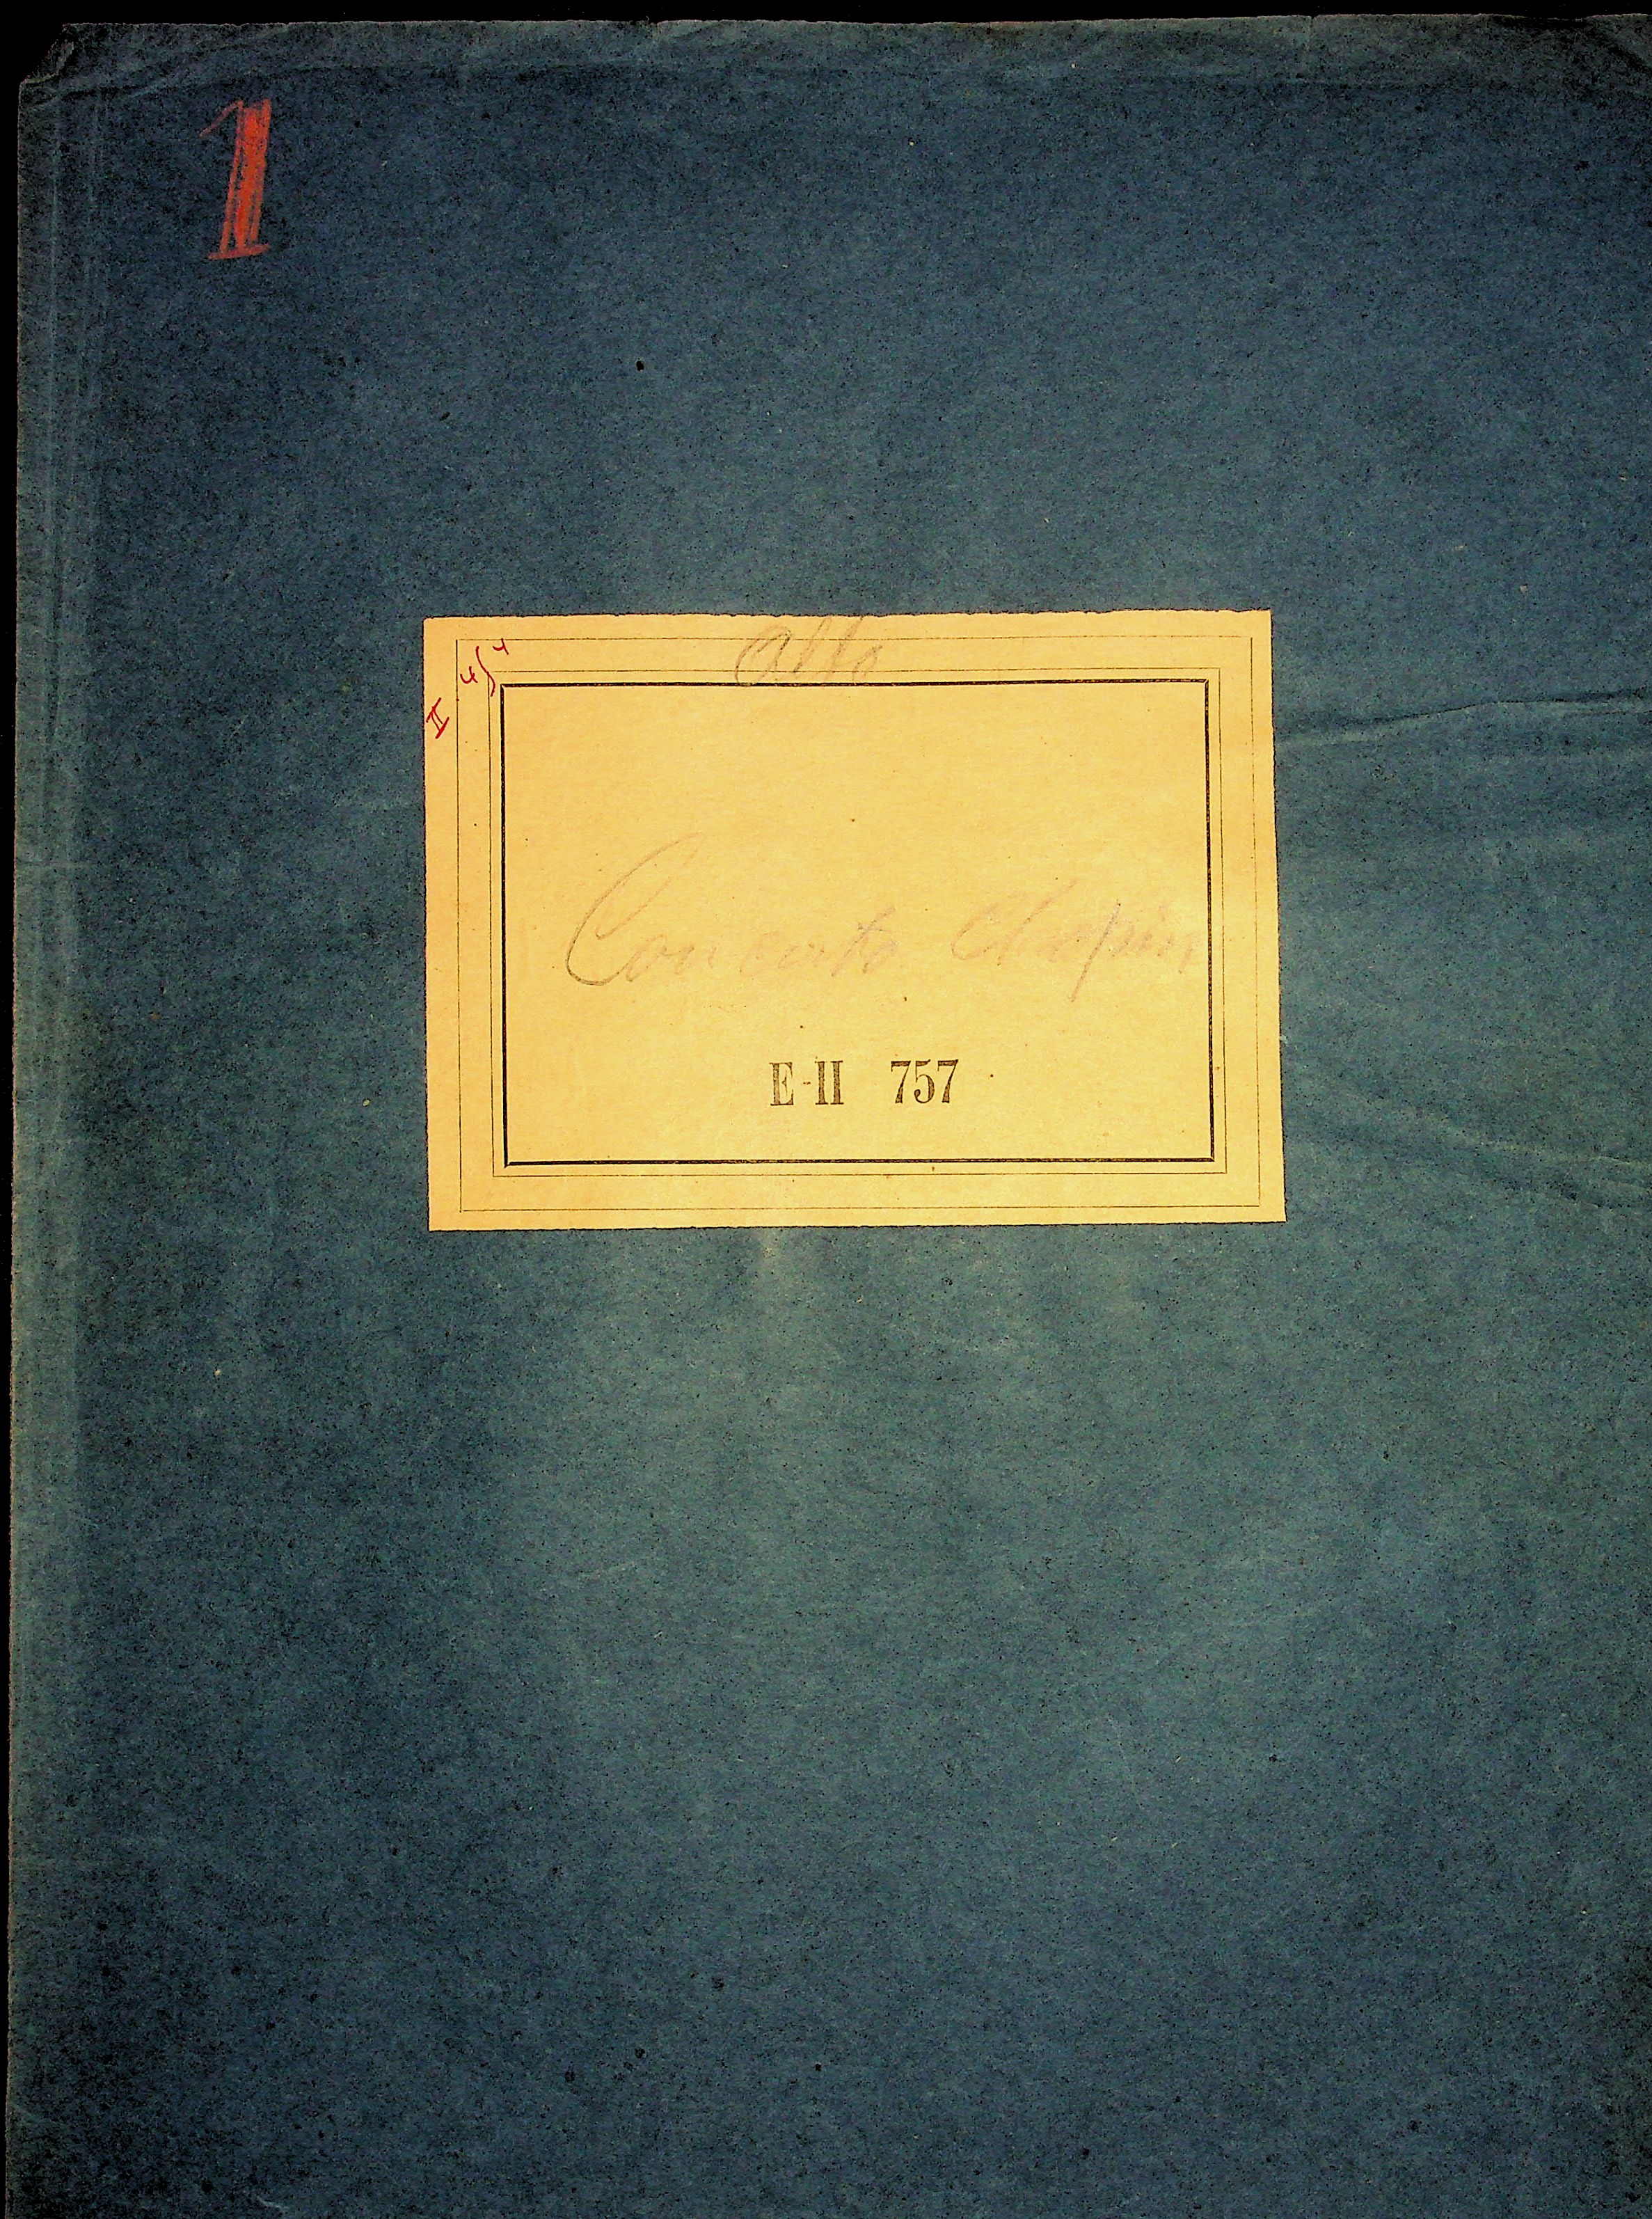 1
II
alto
Concerto Chopin
E-II 757